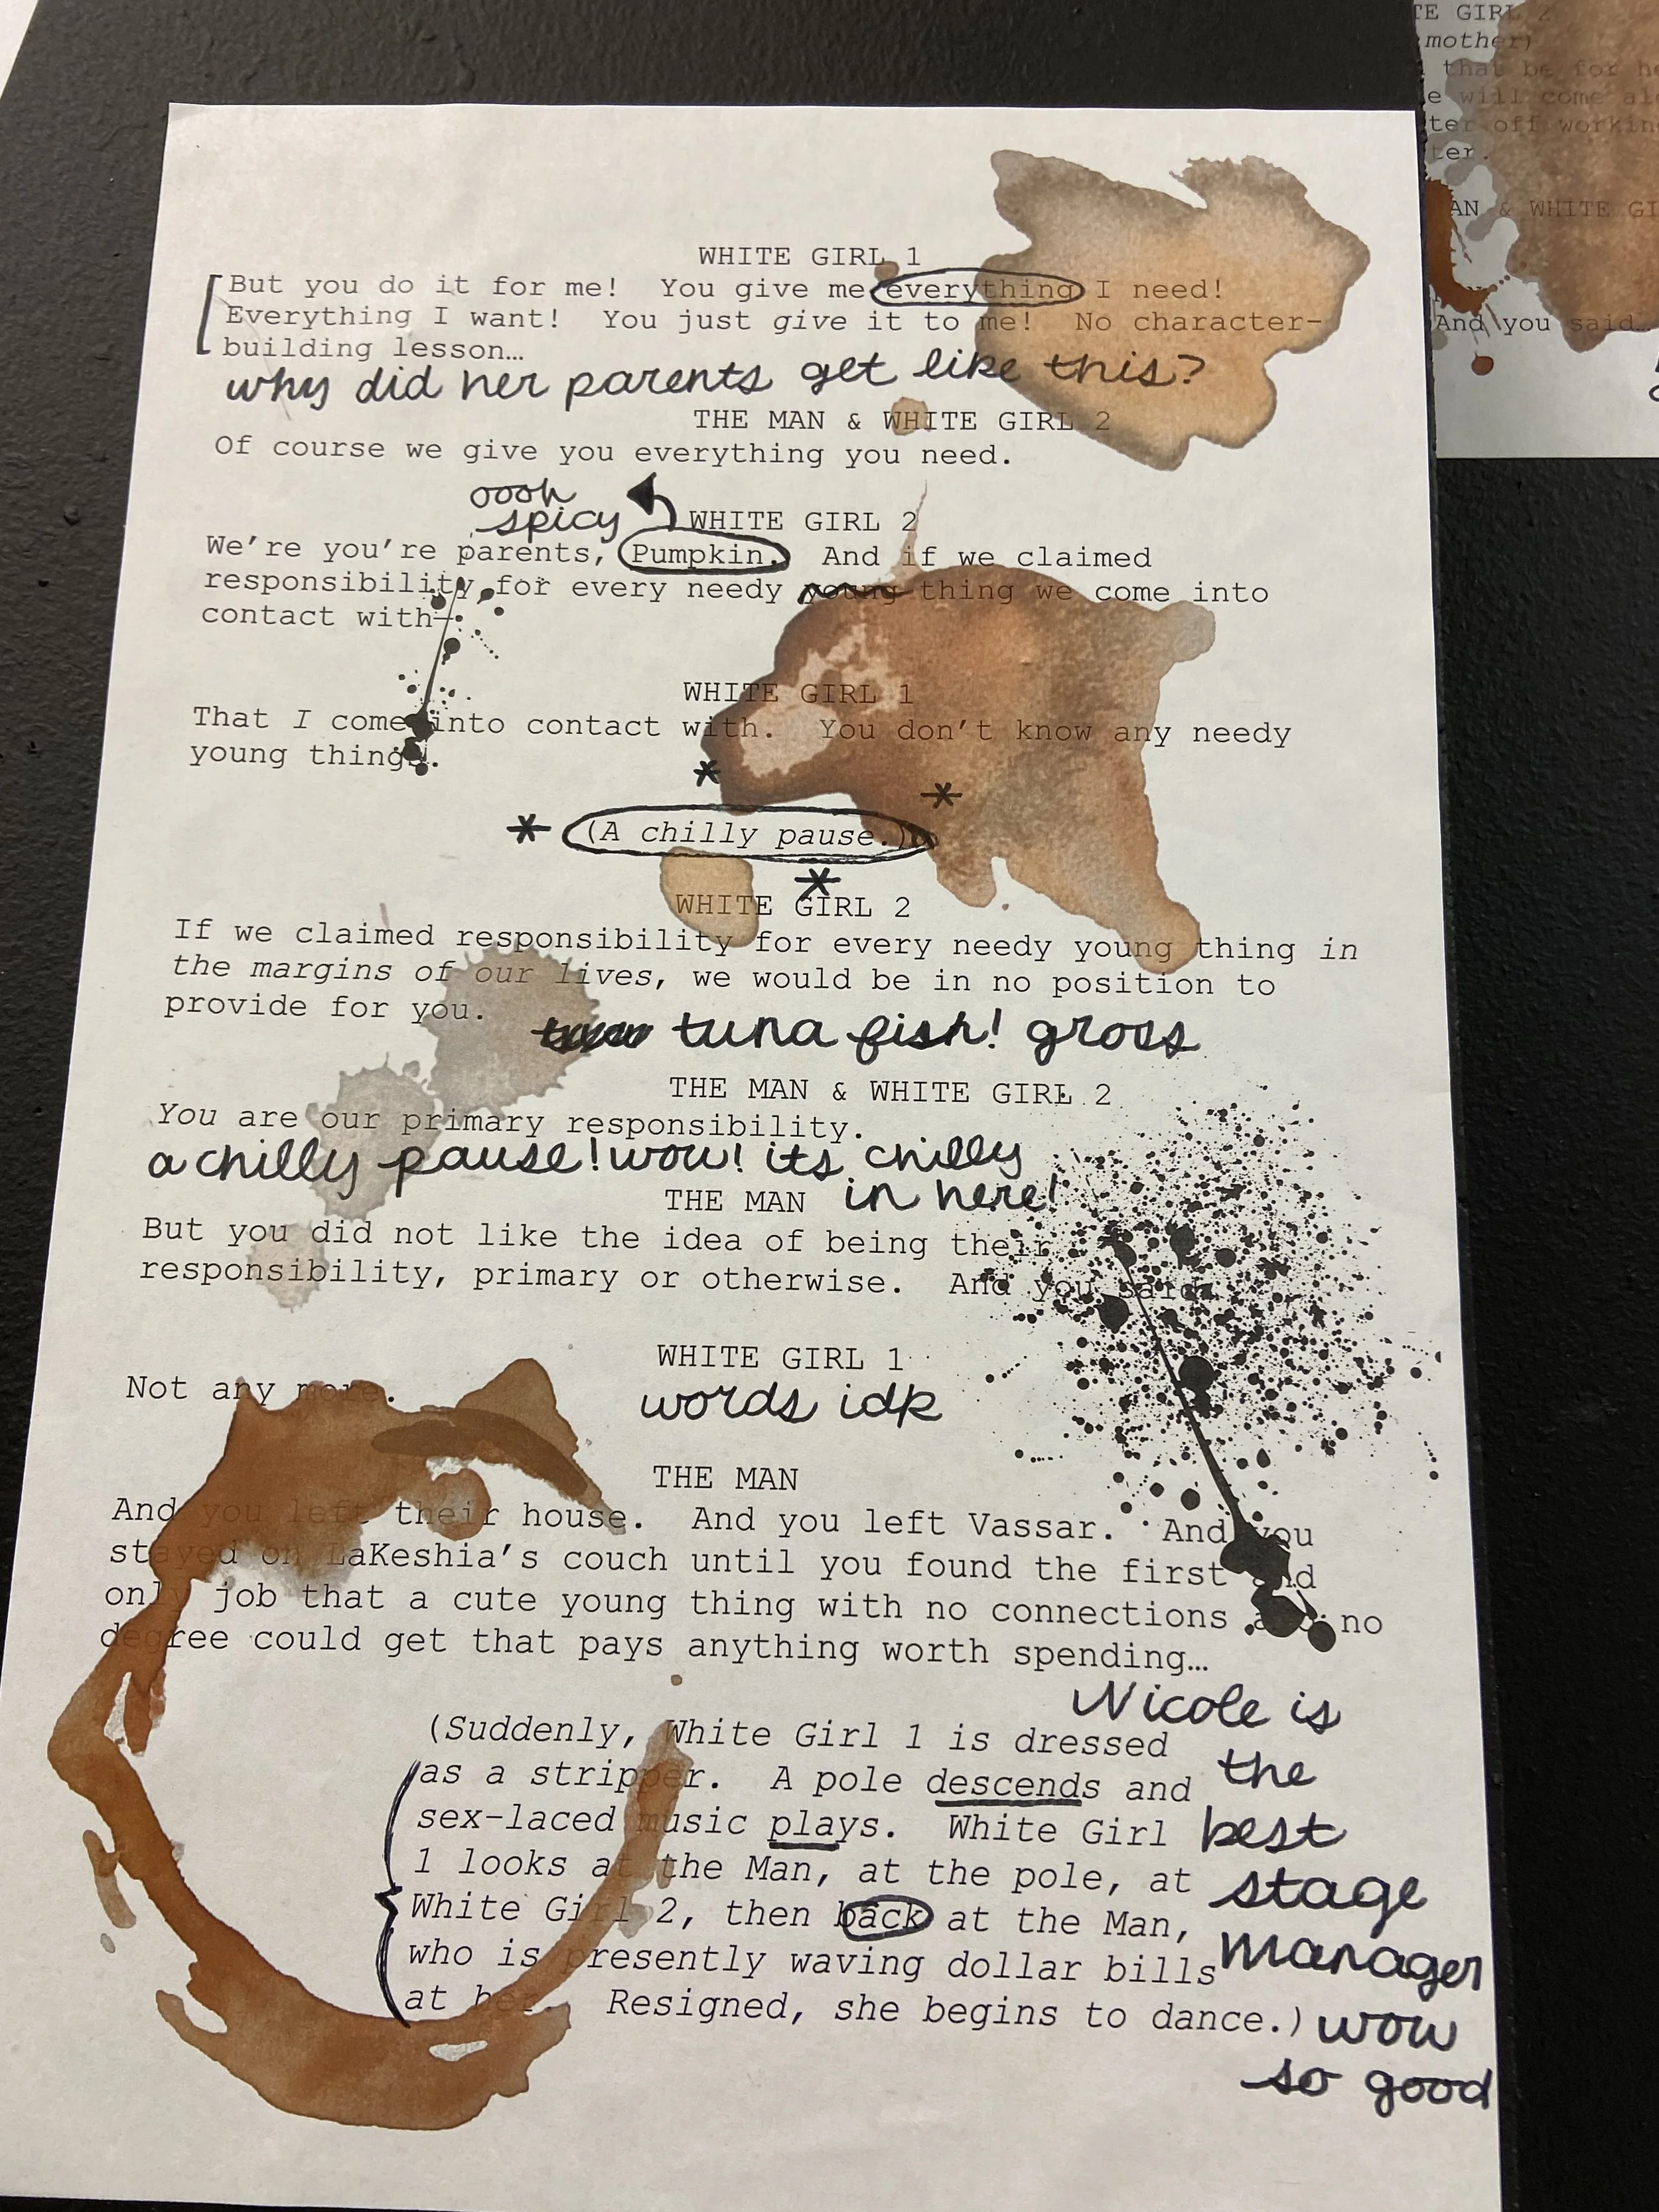 WHITE GIRL 1
But you do it for me!  You give me everything I need!
Everything I want!  You just give it to me!  No character-
building lesson…
why did her parents get like this?
THE MAN & WHITE GIRL 2
Of course we give you everything you need.
oooh
spicy
WHITE GIRL 2
We're you're parents, Pumpkin.  And if we claimed
responsibility for every needy young thing we come into
contact with—
WHITE GIRL 1
That I come into contact with.  You don't know any needy
young things.
* *
* (A chilly pause.)
*
WHITE GIRL 2
If we claimed responsibility for every needy young thing in
the margins of our lives, we would be in no position to
provide for you.
tuna fish! gross
THE MAN & WHITE GIRL 2
You are our primary responsibility.
a chilly pause! wow! its chilly
in here!
THE MAN
But you did not like the idea of being their
responsibility, primary or otherwise.  And you said…
WHITE GIRL 1
Not any more.
words idk
THE MAN
And you left their house.  And you left Vassar.  And you
stayed on LaKeshia's couch until you found the first and
only job that a cute young thing with no connections and no
degree could get that pays anything worth spending…
(Suddenly, White Girl 1 is dressed
as a stripper.  A pole descends and
sex-laced music plays.  White Girl
1 looks at the Man, at the pole, at
White Girl 2, then back at the Man,
who is presently waving dollar bills
at her.  Resigned, she begins to dance.)
Nicole is
the
best
stage
manager
wow
so good
TE GIRL 2
mother)
that be for he
e will come alo
ter off workin
ter.
AN & WHITE GI
And you said…